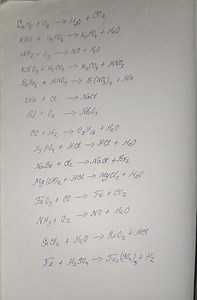 C₂H₂ + O₂ → H₂O + CO₂
KOH + H₃PO₄ → K₃PO₄ + H₂O
+ O₂ → NO + H₂O
KNO₃ + H₂CO₃ → K₂CO₃ + HNO₃
+ HNO₃ → B(NO₃)₃ +
Na + Cl → NaCl
Al + O₂ → Al₂O₃
CO + H₂ → C₈H₁₈ + H₂O
H₃PO₄ + HCl → PCl + H₂O
NaBr + Cl₂ → NaCl + Br₂
Mg(OH)₂ + HCl → MgCl₂ + H₂O
FeO₃ + CO → Fe + CO₂
NH₃ + O₂ → NO + H₂O
SiCl₄ + H₂O → SiO₂ + HCl
Fe + H₂SO₄ → Fe₂(SO₄)₃ + H₂